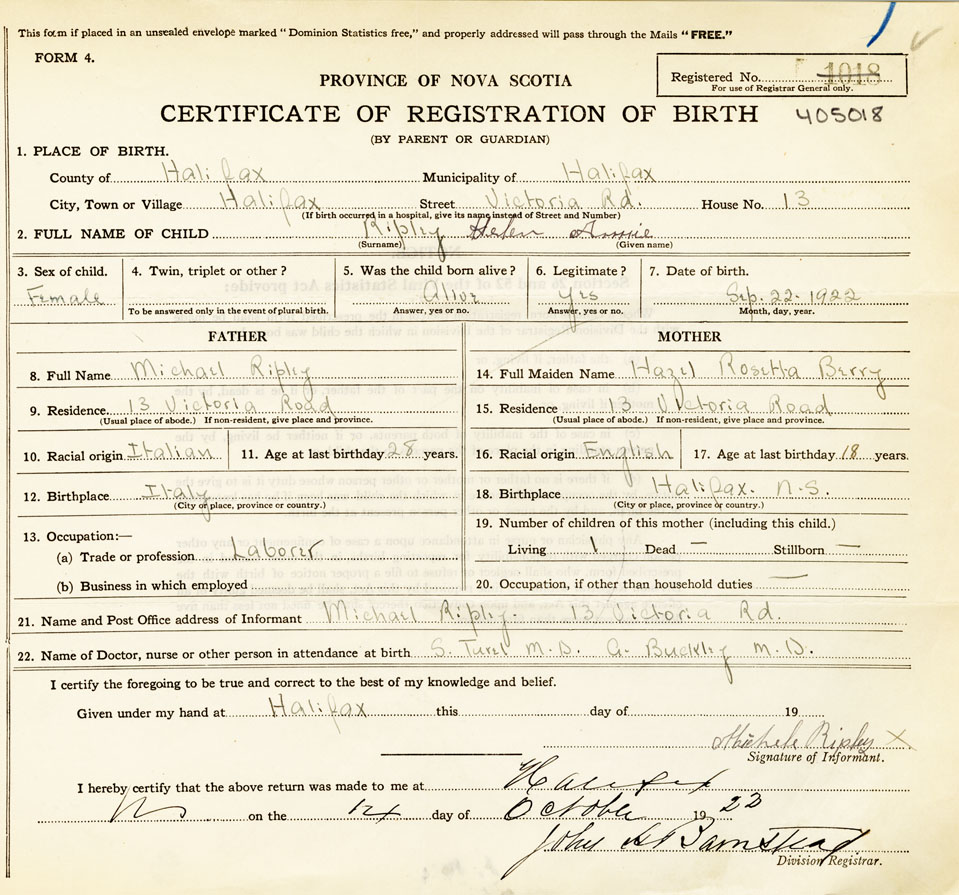 This form if placed in an unsealed envelope marked "Dominion Statistics free," and properly addressed will pass through the Mails "FREE."
FORM 4.
Registered No. 1018
For use of Registrar General only.
PROVINCE OF NOVA SCOTIA
CERTIFICATE OF REGISTRATION OF BIRTH 405018
(BY PARENT OR GUARDIAN)
1. PLACE OF BIRTH.
County of Halifax Municipality of Halifax
City, Town or Village Halifax Street Victoria Rd. House No. 13
(If birth occurred in a hospital, give its name instead of Street and Number)
2. FULL NAME OF CHILD Ripley Helen Annie
(Surname) (Given name)
3. Sex of child. 4. Twin, triplet or other? 5. Was the child born alive? 6. Legitimate? 7. Date of birth.
Female Alive Yes Sep. 22. 1922
To be answered only in the event of plural birth. Answer, yes or no. Answer, yes or no. Month, day, year.
FATHER MOTHER
8. Full Name Michael Ripley 14. Full Maiden Name Hazel Rosetta Berry
9. Residence. 13 Victoria Road 15. Residence 13 Victoria Road
(Usual place of abode.) If non-resident, give place and province. (Usual place of abode.) If non-resident, give place and province.
10. Racial origin Italian 11. Age at last birthday 28 years. 16. Racial origin English 17. Age at last birthday 18 years.
12. Birthplace Italy 18. Birthplace Halifax. N.S.
(City or place, province or country.) (City or place, province or country.)
13. Occupation:— 19. Number of children of this mother (including this child.)
(a) Trade or profession Laborer Living 1 Dead — Stillborn —
(b) Business in which employed 20. Occupation, if other than household duties —
21. Name and Post Office address of Informant Michael Ripley. 13 Victoria Rd.
22. Name of Doctor, nurse or other person in attendance at birth S. M.D. G. Buckley M.D.
I certify the foregoing to be true and correct to the best of my knowledge and belief.
Given under my hand at Halifax this day of 19
Michele Ripley X
Signature of Informant.
I hereby certify that the above return was made to me at Halifax
NS on the day of October 1922
John Barnstead
Division Registrar.